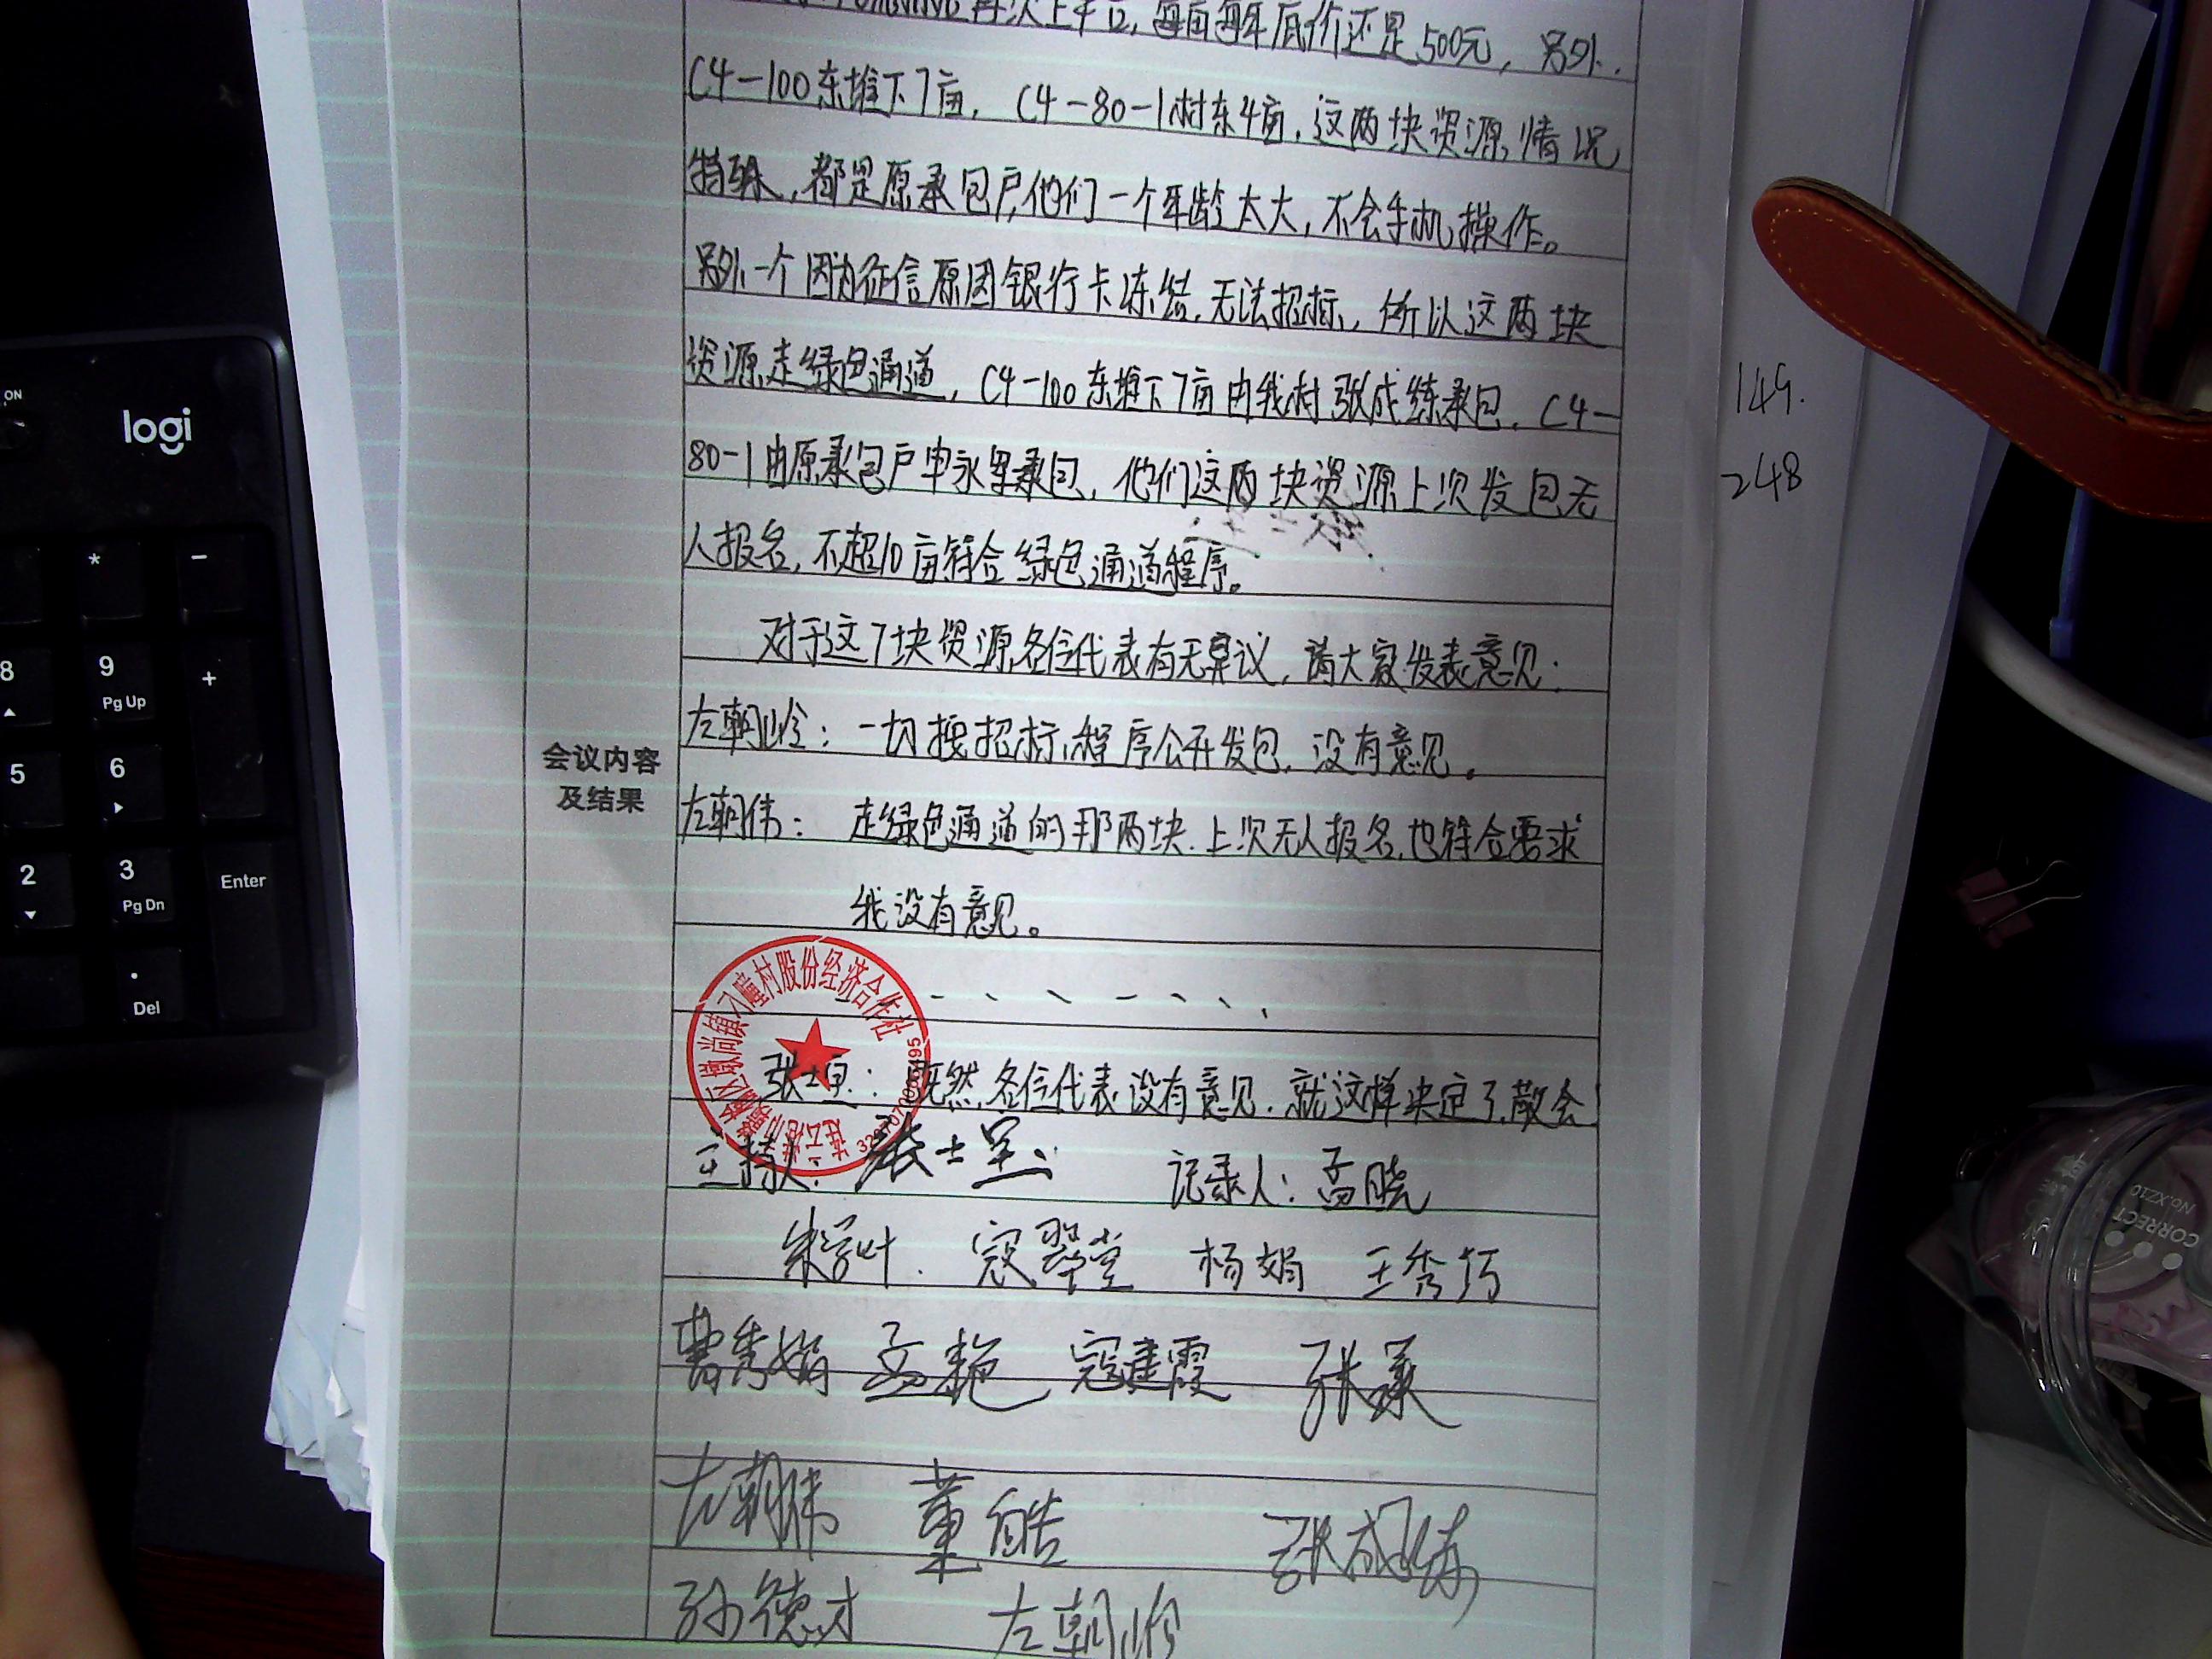 再次上平台, 每亩每年底价还是500元, 另外,
C4-100东堆下7亩, C4-80-1村东4亩, 这两块资源情况
特殊, 都是原承包户, 他们一个年龄太大, 不会手机操作。
另外一个因为征信原因银行卡冻结, 无法招标, 所以这两块
资源走绿色通道, C4-100东堆下7亩由我村张成练承包, C4-
80-1由原承包户申永里承包, 他们这两块资源上次发包无
人报名, 不超10亩符合绿色通道程序。
对于这7块资源各位代表有无异议, 请大家发表意见:
左朝岭: 一切按招标程序公开发包, 没有意见。
左朝伟: 走绿色通道的那两块, 上次无人报名, 也符合要求
我没有意见。
会议内容
及结果
连云港市赣榆区墩尚镇刁疃村股份经济合作社
张士军: 既然各位代表没有意见, 就这样决定了, 散会!
主持人: 张士军 记录人: 孟晓
朱学叶 寇翠堂 杨娟 王秀巧
曹秀娟 孟艳 寇建霞 张兼
左朝伟 董皓 张成练
孙德才 左朝岭
149.
248
logi
ON
* -
8 9 Pg Up +
5 6
2 3 Pg Dn Enter
. Del
CORRECT
No.XZ10